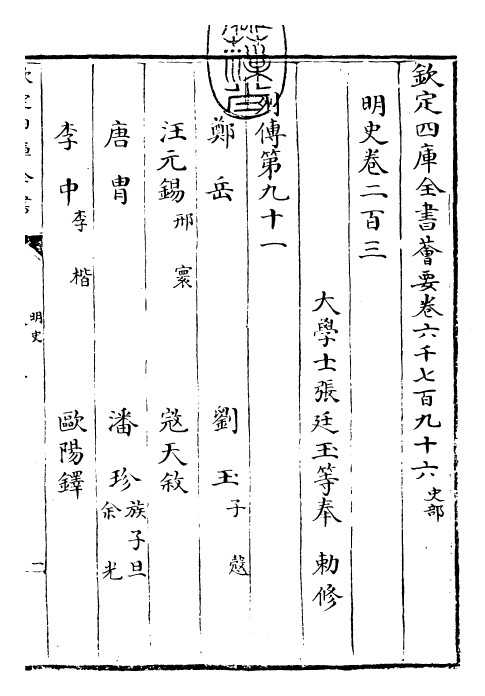 欽定四庫全書薈要卷六千七百九十六 史部
明史卷二百三
大學士張廷玉等奉 勅修
列傳第九十一
鄭岳 劉玉 子慤
汪元錫 邢寰 寇天敘
唐冑 潘珍 族子旦 余光
李中 李楷 歐陽鐸
欽定四庫全書
明史